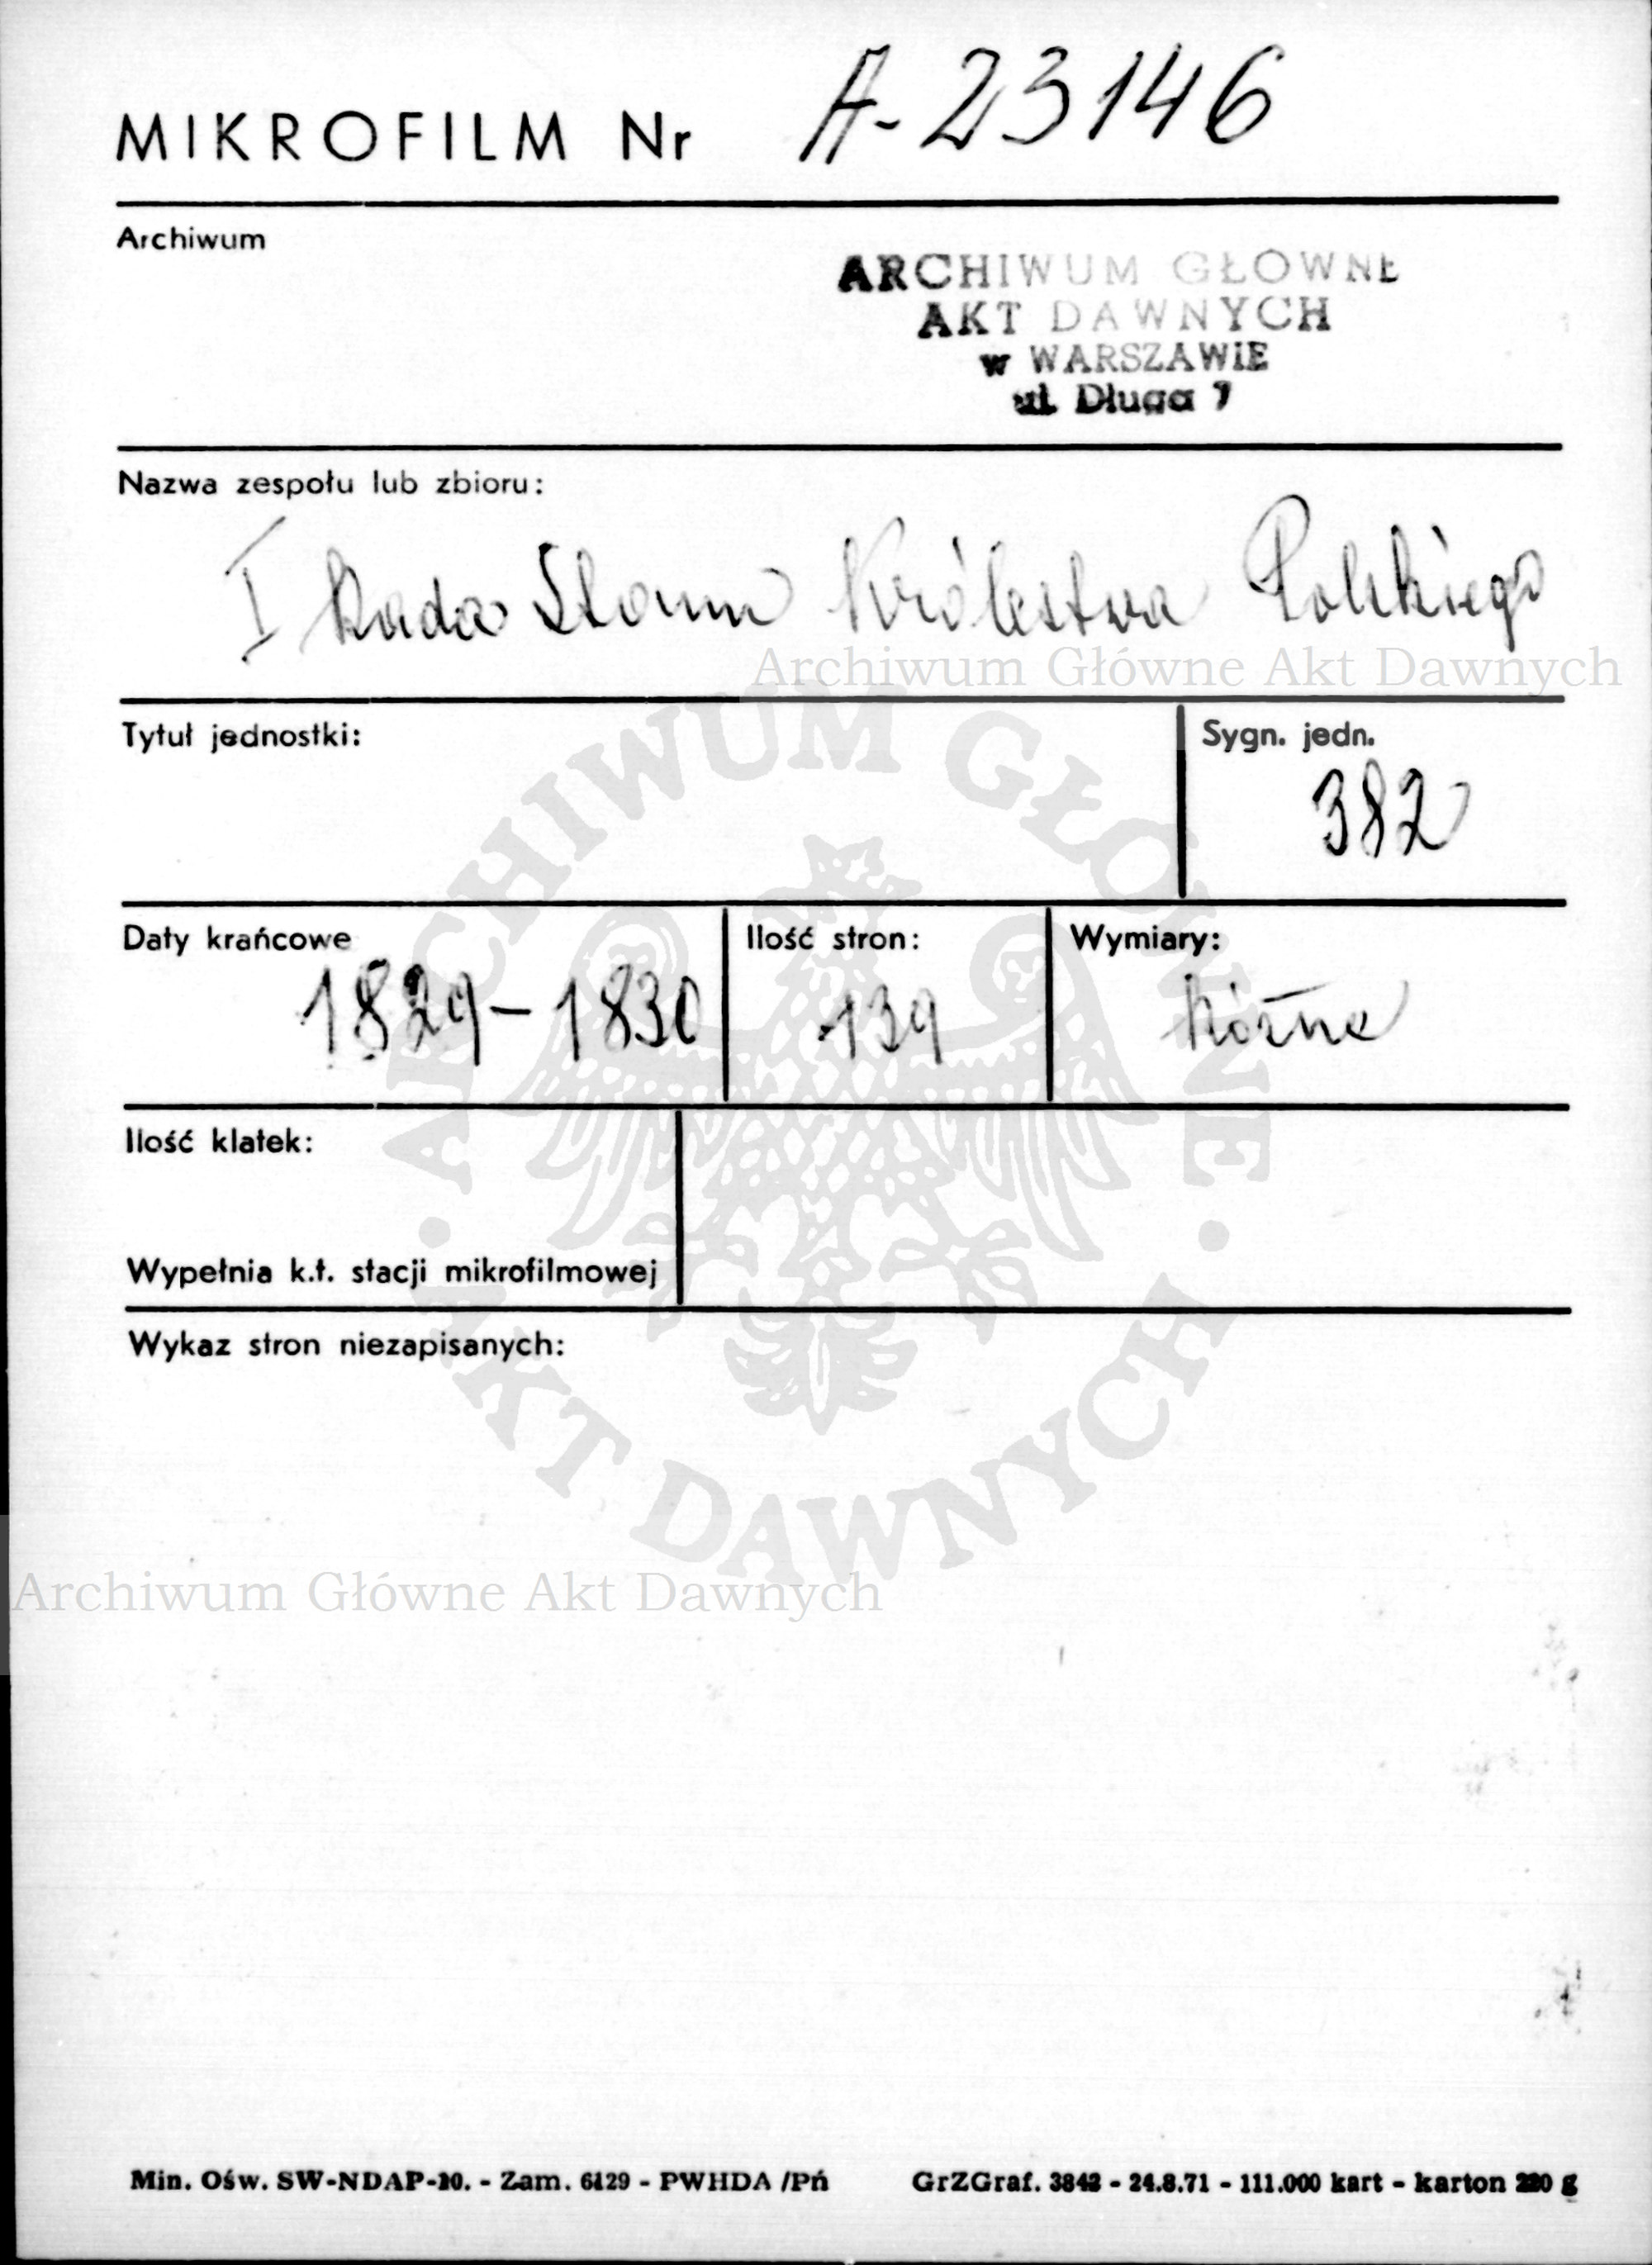 MIKROFILM Nr A-23146
Archiwum
ARCHIWUM GŁÓWNE
AKT DAWNYCH
w WARSZAWIE
ul. Długa 7
Nazwa zespołu lub zbioru:
I Rada Stanu Królestwa Polskiego
Archiwum Główne Akt Dawnych
Tytuł jednostki:
Sygn. jedn.
382
Daty krańcowe
1829-1830
Ilość stron:
139
Wymiary:
Różne
Ilość klatek:
Wypełnia k.t. stacji mikrofilmowej
Wykaz stron niezapisanych:
ARCHIWUM GŁÓWNE
AKT DAWNYCH
Archiwum Główne Akt Dawnych
Min. Ośw. SW-NDAP-10. - Zam. 6129 - PWHDA /Pń GrZGraf. 3843 - 24.8.71 - 111.000 kart - karton 220 g